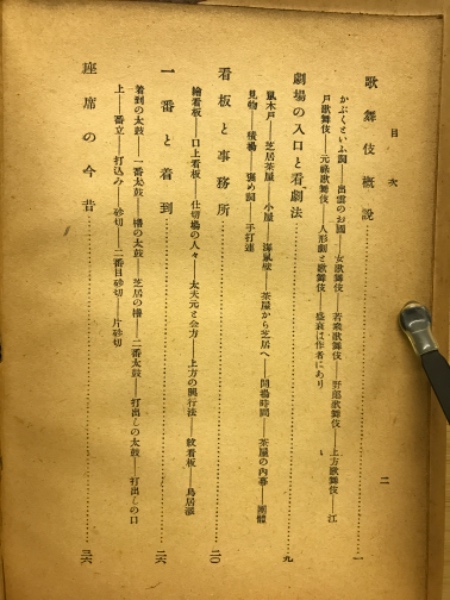 目次
二
歌舞伎概説……一
かぶくといふ詞――出雲のお國――女歌舞伎――若衆歌舞伎――野郎歌舞伎――上方歌舞伎――江
戸歌舞伎――元祿歌舞伎――人形劇と歌舞伎――盛衰は作者にあり
劇場の入口と看劇法……九
鼠木戸――芝居茶屋――小屋――海鼠壁――茶屋から芝居へ――開場時間――茶屋の内幕――團體
見物――棧場――褒め詞――手打連
看板と事務所……二〇
繪看板――口上看板――仕切場の人々――太夫元と金方――上方の興行法――紋看板――鳥居派
一番と着到……二六
着到の太鼓――一番太鼓――櫓の太鼓――芝居の櫓――二番太鼓――打出しの太鼓――打出しの口
上――番立――打込み――砂切――二番目砂切――片砂切
座席の今昔……三六